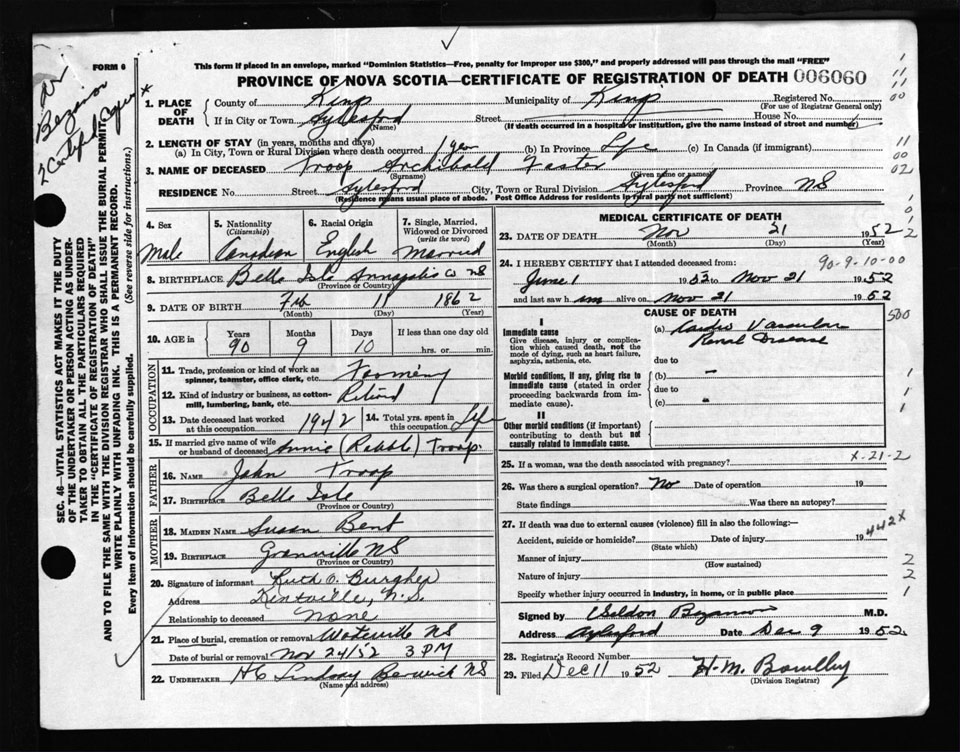 FORM 6
This form if placed in an envelope, marked "Dominion Statistics—Free, penalty for improper use $300," and properly addressed will pass through the mail "FREE"
PROVINCE OF NOVA SCOTIA—CERTIFICATE OF REGISTRATION OF DEATH 006060
1. PLACE OF DEATH
County of Kings Municipality of Kings Registered No.
(For use of Registrar General only)
If in City or Town Aylesford Street House No.
(Name) (If death occurred in a hospital or institution, give the name instead of street and number)
2. LENGTH OF STAY (in years, months and days)
(a) In City, Town or Rural Division where death occurred 1 year (b) In Province Life (c) In Canada (if immigrant)
3. NAME OF DECEASED Troop Archibald Foster
(Surname) (Given name or names)
RESIDENCE No. Street Aylesford City, Town or Rural Division Aylesford Province NS
(Residence means usual place of abode. Post Office Address for residents in rural parts not sufficient)
4. Sex
Male
5. Nationality
(Citizenship)
Canadian
6. Racial Origin
English
7. Single, Married,
Widowed or Divorced
(write the word)
Married
8. BIRTHPLACE Belle Isle Annapolis Co NS
(Province or Country)
9. DATE OF BIRTH Feb 11 1862
(Month) (Day) (Year)
10. AGE in
Years
90
Months
9
Days
10
If less than one day old
hrs. or min.
OCCUPATION
11. Trade, profession or kind of work as
spinner, teamster, office clerk, etc. Farming
12. Kind of industry or business, as cotton-
mill, lumbering, bank, etc. Retired
13. Date deceased last worked
at this occupation 1942
14. Total yrs. spent in
this occupation Life
15. If married give name of wife
or husband of deceased Annie Troop
FATHER
16. NAME John Troop
17. BIRTHPLACE Belle Isle
(Province or Country)
MOTHER
18. MAIDEN NAME Susan Bent
19. BIRTHPLACE Granville NS
(Province or Country)
20. Signature of informant Ruth O.
Address Kentville, N.S.
Relationship to deceased None
21. Place of burial, cremation or removal Waterville NS
Date of burial or removal Nov 24/52 3 PM
22. UNDERTAKER Lindsay Berwick NS
(Name and address)
MEDICAL CERTIFICATE OF DEATH
23. DATE OF DEATH Nov 21 1952
(Month) (Day) (Year)
24. I HEREBY CERTIFY that I attended deceased from: 90-9-10-00
June 1 to Nov 21 1952
and last saw him alive on Nov 21 1952
CAUSE OF DEATH
I
Immediate cause
Give disease, injury or complica-
tion which caused death, not the
mode of dying, such as heart failure,
asphyxia, asthenia, etc.
(a) Cardio Vascular
Renal Disease
due to
Morbid conditions, if any, giving rise to
immediate cause (stated in order
proceeding backwards from im-
mediate cause).
(b)
due to
(c)
II
Other morbid conditions (if important)
contributing to death but not
causally related to immediate cause.
25. If a woman, was the death associated with pregnancy? X-21-2
26. Was there a surgical operation? No Date of operation 19
State findings Was there an autopsy?
27. If death was due to external causes (violence) fill in also the following:—
Accident, suicide or homicide? Date of injury 19 442X
(State which)
Manner of injury
(How sustained)
Nature of injury
Specify whether injury occurred in industry, in home, or in public place
Signed by M.D.
Address Aylesford Date Dec 9 1952
28. Registrar's Record Number
29. Filed Dec 11 1952 H.M.
(Division Registrar)
SEC. 46—VITAL STATISTICS ACT MAKES IT THE DUTY
OF THE UNDERTAKER OR PERSON ACTING AS UNDER-
TAKER TO OBTAIN ALL THE PARTICULARS REQUIRED
IN THE "CERTIFICATE OF REGISTRATION OF DEATH"
AND TO FILE THE SAME WITH THE DIVISION REGISTRAR WHO SHALL ISSUE THE BURIAL PERMIT.
WRITE PLAINLY WITH UNFADING INK. THIS IS A PERMANENT RECORD.
Every item of Information should be carefully supplied. (See reverse side for instructions.)